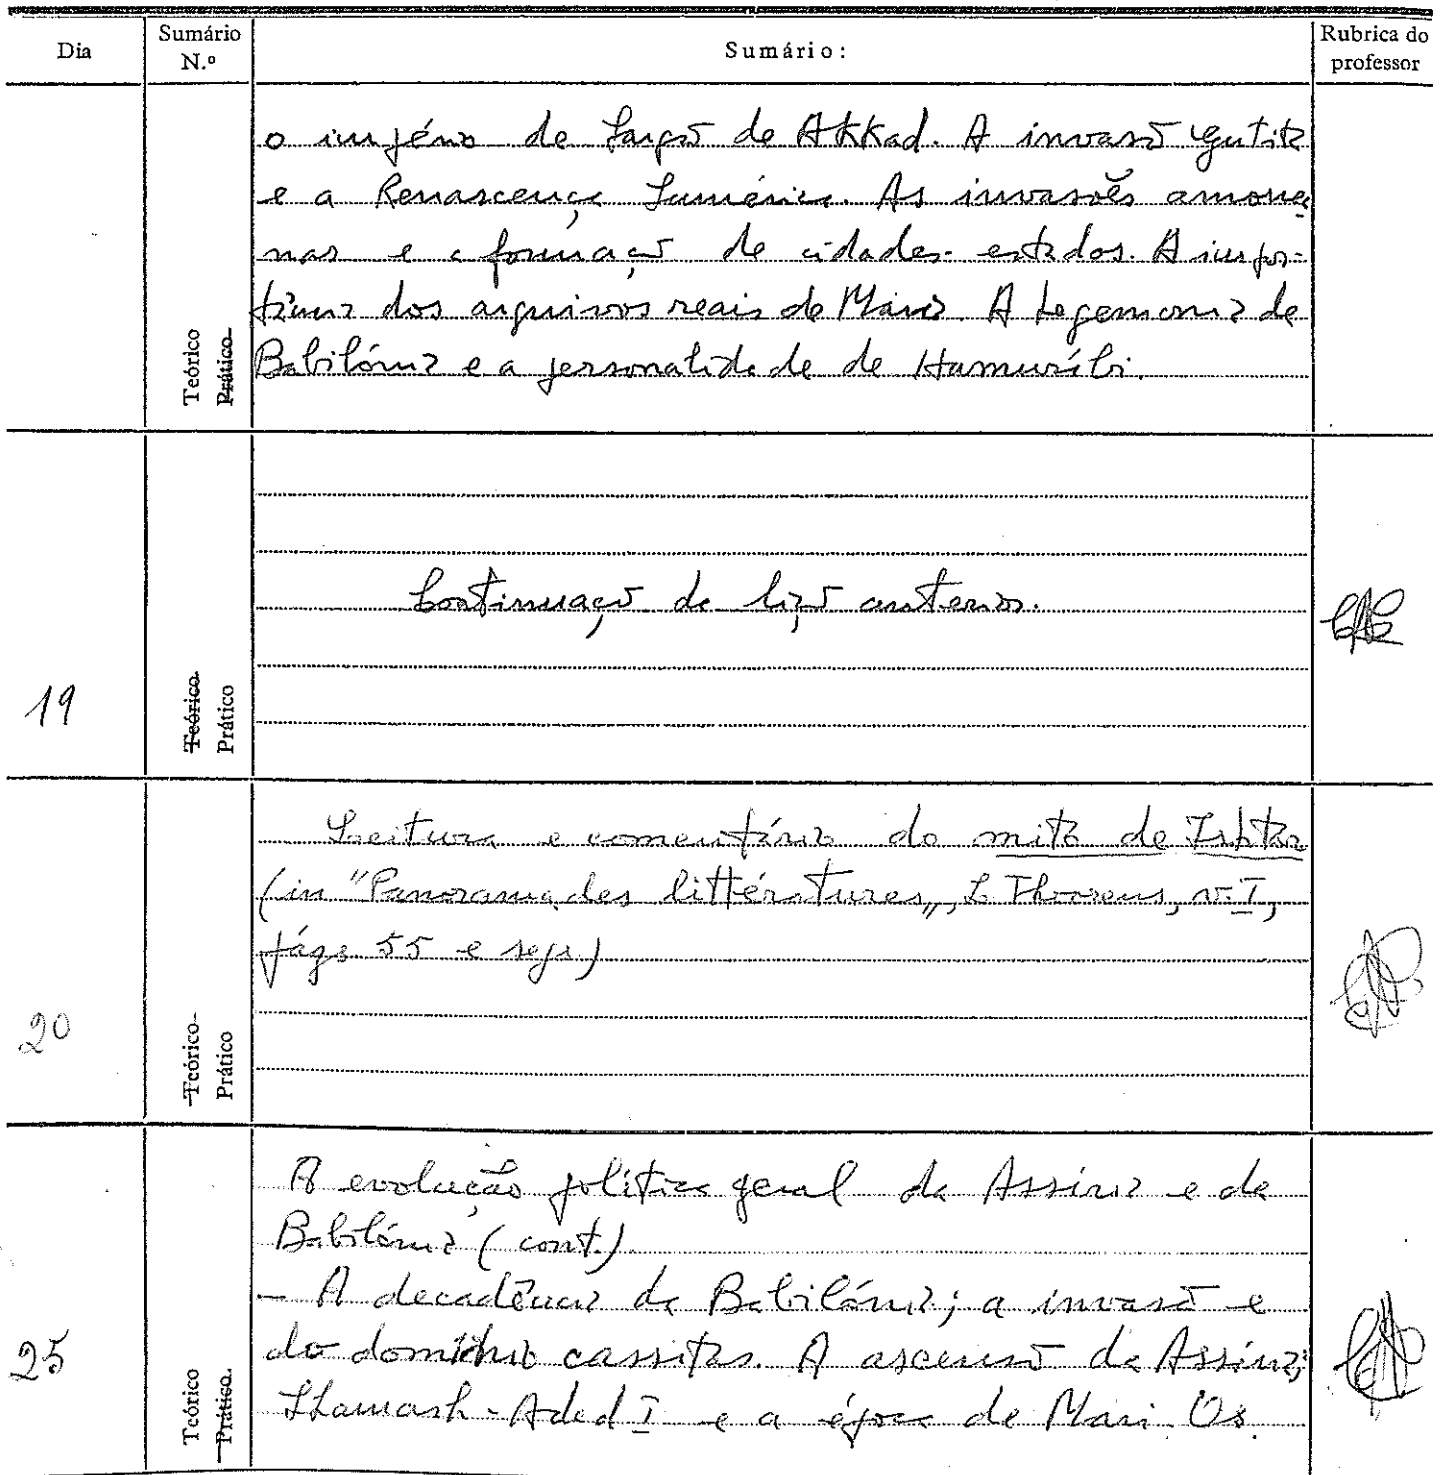 Dia
Sumário N.º
Sumário:
Rubrica do professor
o império de Sargão de Akkad. A invasão gutite
e a Renascença Suméria. As invasões amorre-
nas e a formação de cidades-estados. A impor-
tância dos arquivos reais de Mari. A hegemonia de
Babilónia e a personalidade de Hamurábi.
Teórico
Prático
19
Teórico
Prático
Continuação da lição anterior.
20
Teórico
Prático
Leitura e comentário do mito de Ishtar
(in "Panorama des littératures", L. Thoorens, v. I,
págs 55 e segs.)
25
Teórico
Prático
A evolução política geral da Assíria e da
Babilónia (cont.)
- A decadência da Babilónia; a invasão e
do domínio cassitas. A ascensão da Assíria;
Shamash-Adad I e a época de Mari. Os